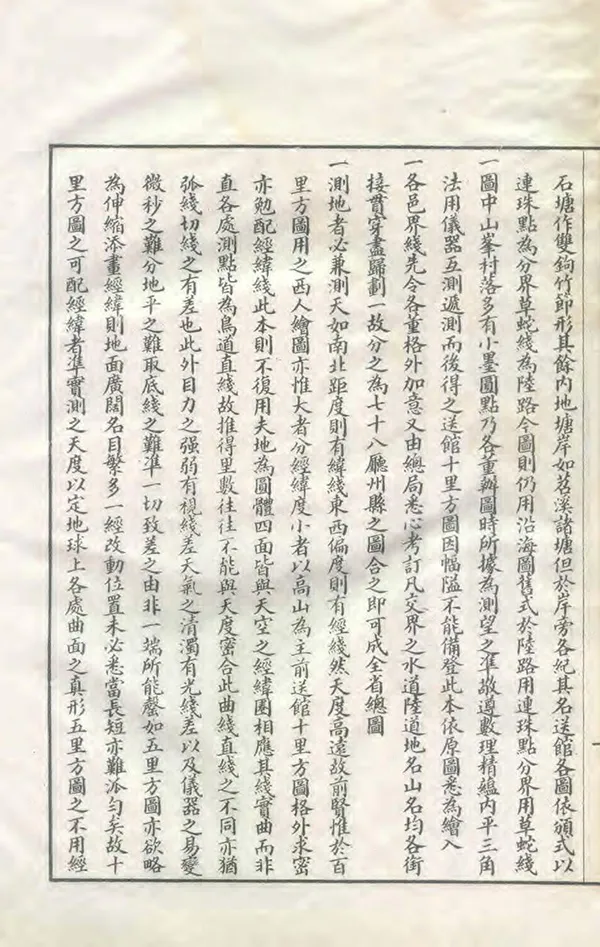 石塘作雙鉤竹節形其餘內地塘岸如苕溪諸塘但於岸旁各紀其名送館各圖依頒式以
連珠點為分界草蛇綫為陸路今圖則仍用沿海圖舊式於陸路用連珠點分界用草蛇綫
一圖中山峯村落多有小墨圓點乃各董辦圖時所據為測望之准敬遵數理精蘊內平三角
法用儀器互測遞測而後得之送館十里方圖因幅隘不能備登此本依原圖悉為繪入
一各邑界綫先令各董格外加意又由總局悉心考訂凡交界之水道陸道地名山名均各銜
接貫穿盡歸劃一故分之為七十八廳州縣之圖合之即可成全省總圖
一測地者必兼測天如南北距度則有緯綫東西偏度則有經綫然天度高遠故前賢惟於百
里方圖用之西人繪圖亦惟大者分經緯度小者以高山為主前送館十里方圖格外求密
亦勉配經緯綫此本則不復用夫地為圓體四面皆與天空之經緯圈相應其綫實曲而非
直各處測點皆為鳥道直綫故推得里數往往不能與天度密合此曲綫直綫之不同亦猶
弧綫切綫之有差也此外目力之强弱有視綫差天氣之清濁有光綫差以及儀器之易變
微秒之難分地平之難取底綫之難準一切致差之由非一端所能罄如五里方圖亦欲略
為伸縮添畫經緯則地面廣闊名目繁多一經改動位置未必悉當長短亦難派勻矣故十
里方圖之可配經緯者準實測之天度以定地球上各處曲面之真形五里方圖之不用經